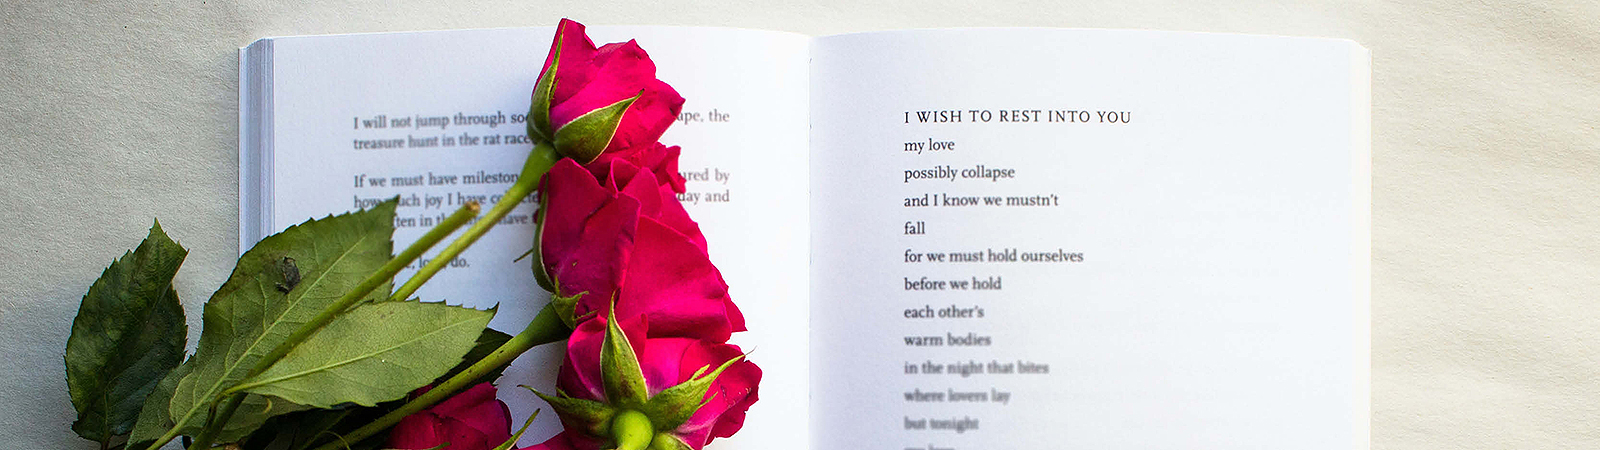 I will not jump through the
treasure hunt in the rat race
If we must have by
how much joy I have day and
in have
do.
I WISH TO REST INTO YOU
my love
possibly collapse
and I know we mustn't
fall
for we must hold ourselves
before we hold
each other's
warm bodies
in the night that bites
where lovers lay
but tonight